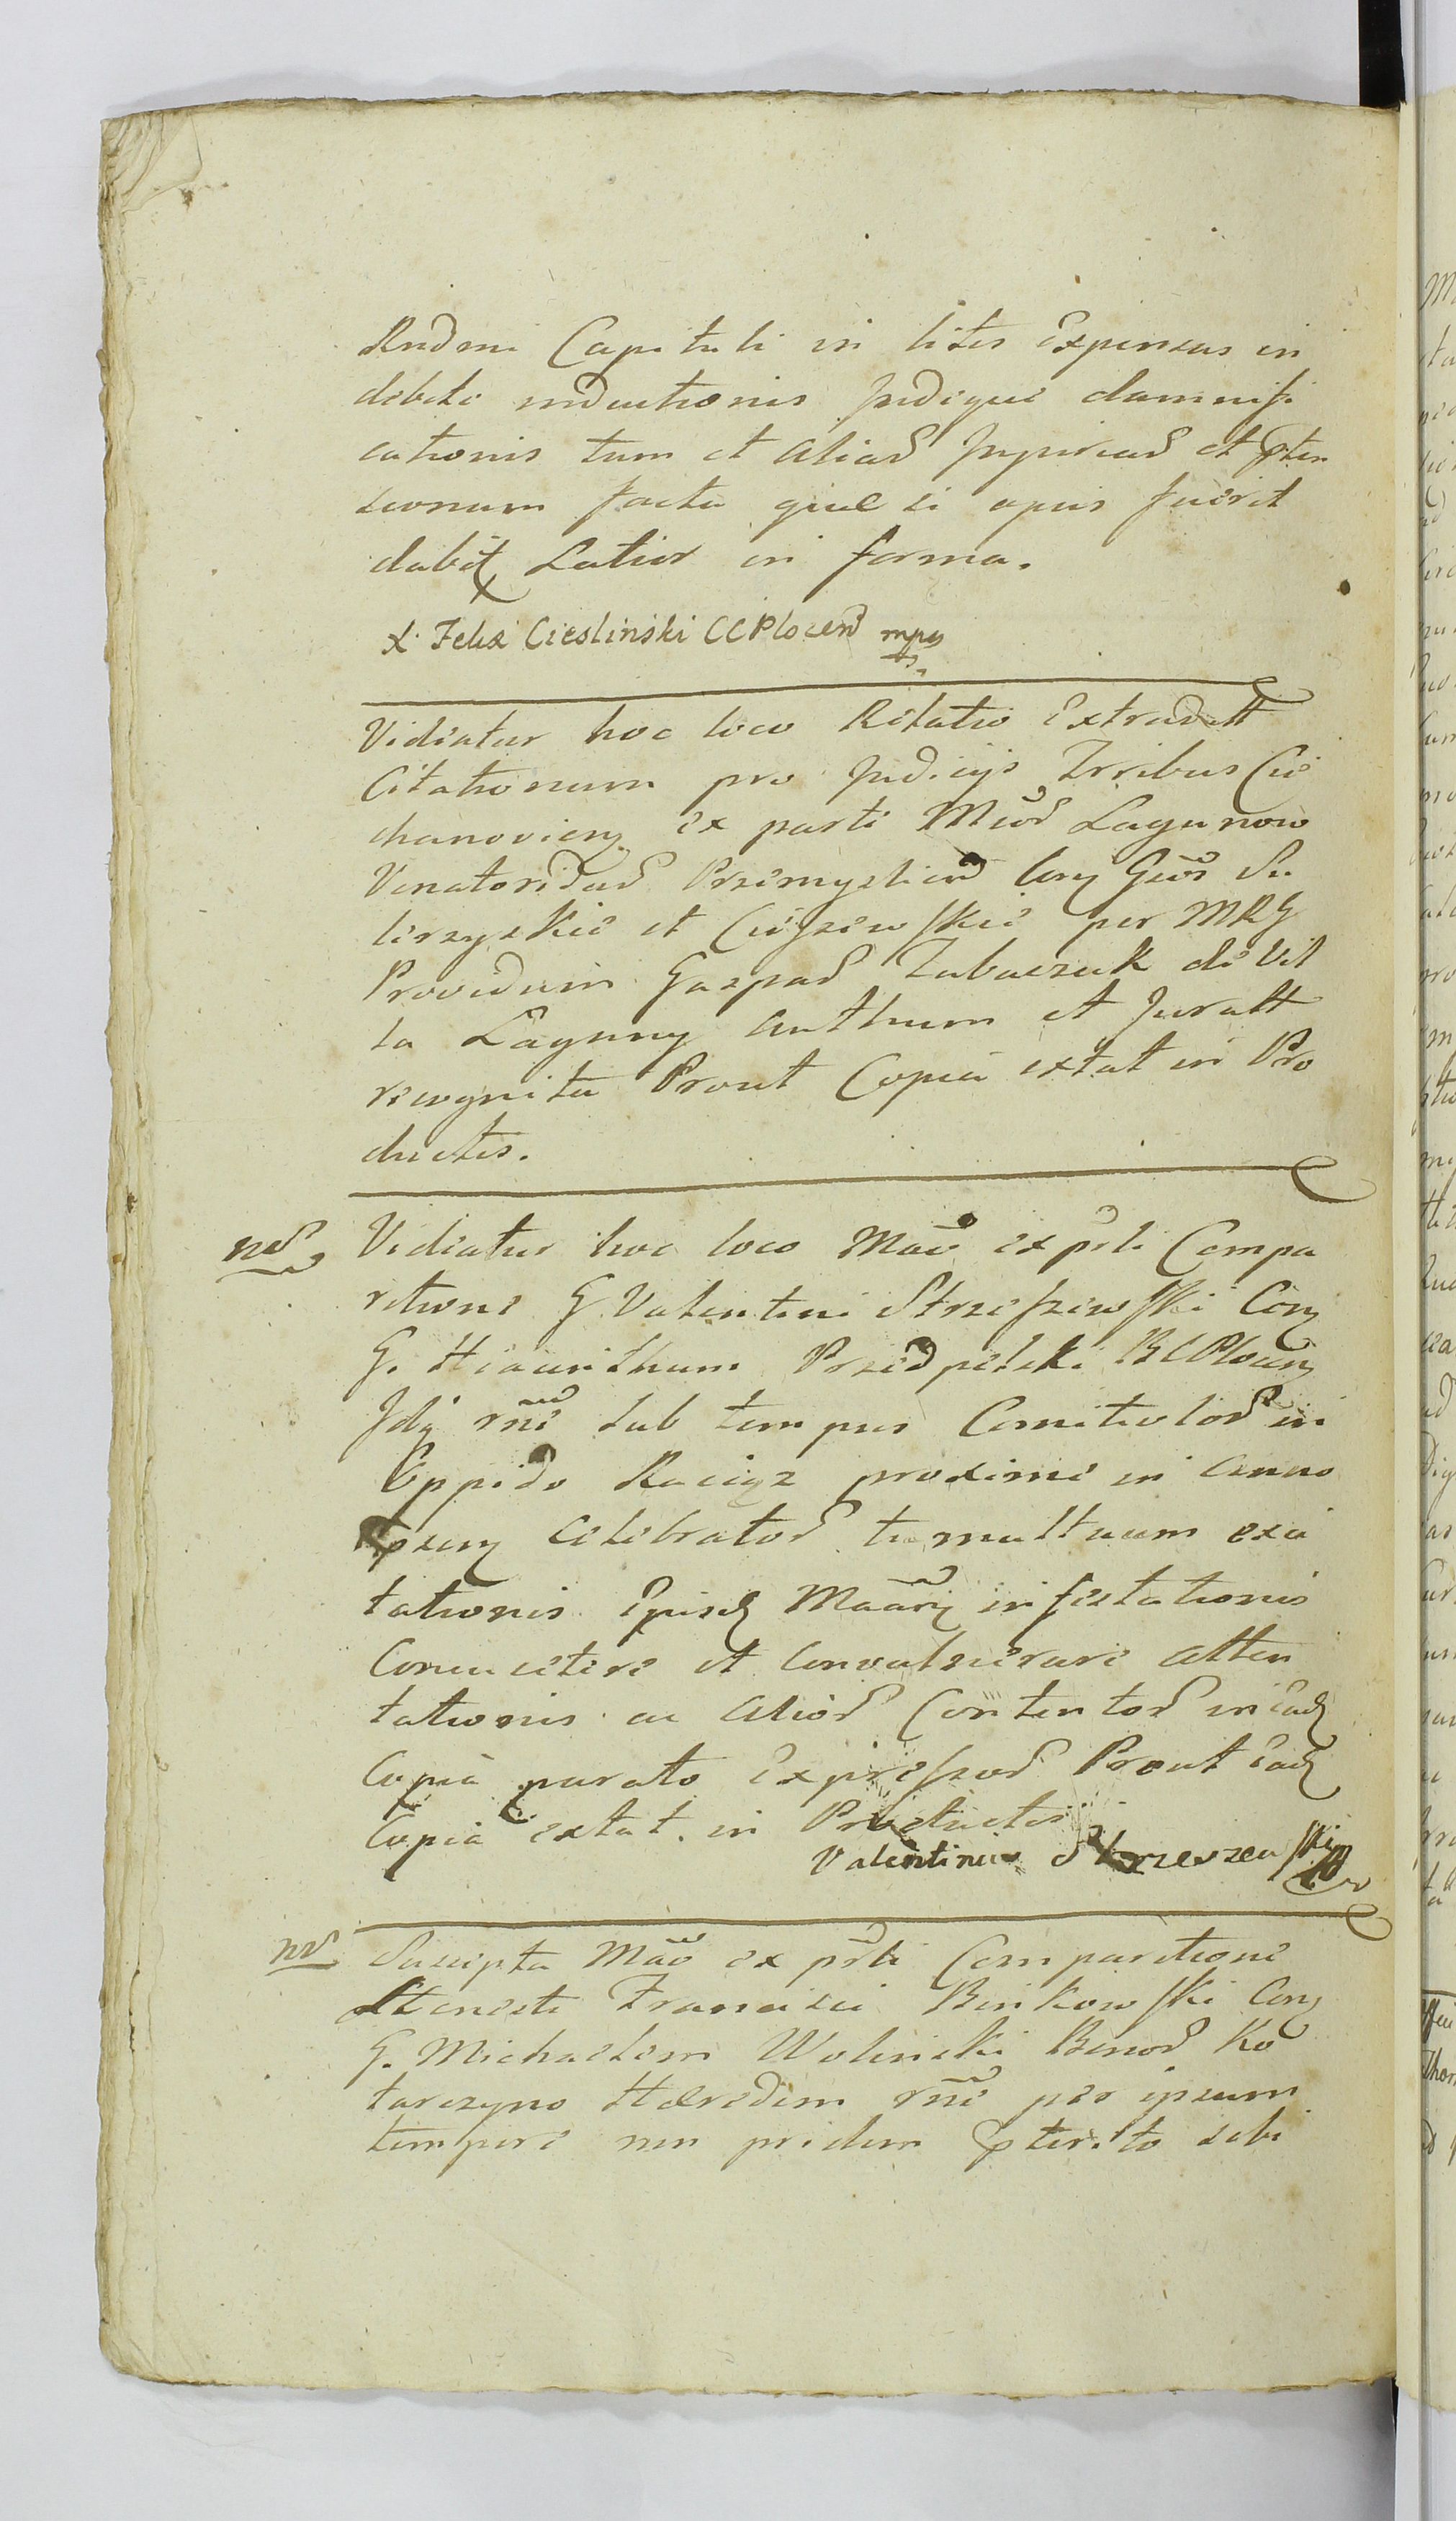 Rndmi Capituli in lites Expensas in
debite inductionis Jndeque damnifi
cationis tum et aliar Jnjuriar et pten
sionum facta quae si opus fuerit
dabit Latior in forma.
X. Felix Cieslinski CCPlocen mpp
Videatur hoc loco Relatio Extradtt
Citationum pro Judicijs Trribus Cie
chanovien ex parte Mcor Lagunow
Venatoridar Przemyslien Con Gnos Su
lerzyskie et Cieszewskie per MRG
Providum Gaspar Zubaczuk de Vil
la Laguny authum et Juratt
recognita Prout Copia extat in Pro
ductis.
nr Videatur hoc loco Maõ ex psti Compa
ritione G Valentini Strzeszewski Con
G. Hiacinthum Przedpelski BCPlocen
Jdq rne sub tempus Comitiolor in
Oppido Raciąz proxime in anno
psen Celebrator tumultuum exci
tationis Epusd Maari infestationis
Concucitere et Convulnerare atten
tationis ac alior Contentor in ead
Copia parato Expressor Prout Ead
Copia extat in Productis
Valentinus Strzeszewski
nr Suscepta Maõ ex psti Comparitione
Honesti Francisci Binkowski Con
G. Michaelem Wolinski Bonor Ko
tarczyno Haeredem rne per ipsum
tempore non pridem pterito sibi